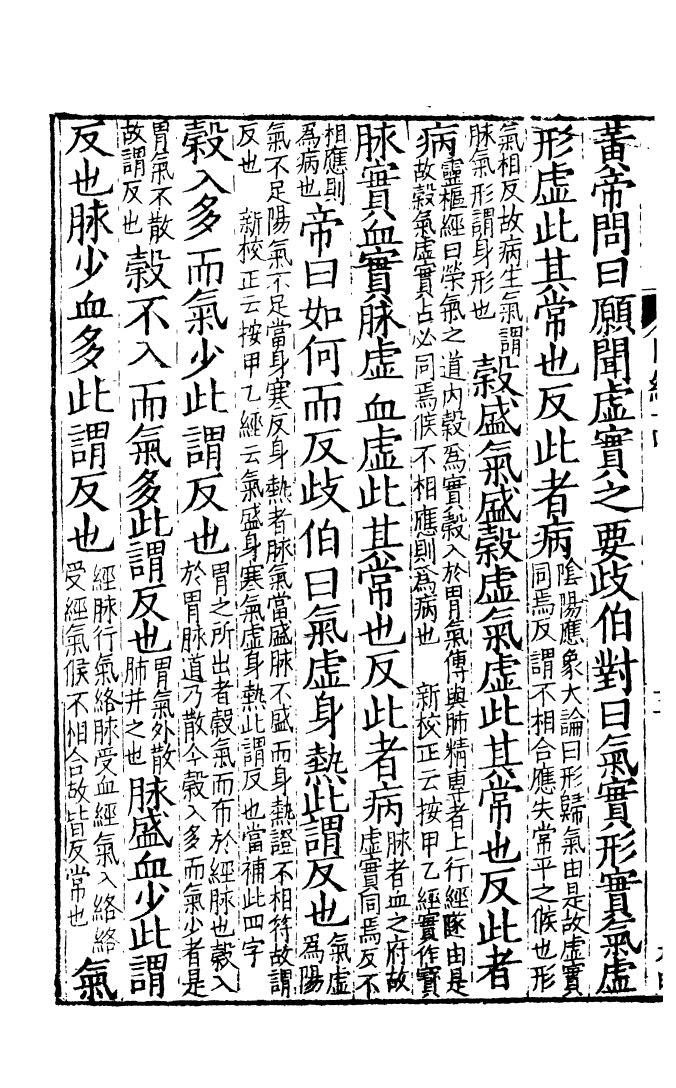 黃帝問曰願聞虛實之要歧伯對曰氣實形實氣虛
形虛此其常也反此者病陰陽應象大論曰形歸氣由是故虛實同焉反謂不相合應失常平之候也形
氣相反故病生氣謂脉氣形謂身形也穀盛氣盛穀虛氣虛此其常也反此者
病靈樞經曰榮氣之道內穀爲實穀入於胃氣傳與肺精專者上行經隧由是故穀氣虛實占必同焉候不相應則爲病也 新校正云按甲乙經實作寶
脉實血實脉虛血虛此其常也反此者病脉者血之府故虛實同焉反不
相應則爲病也帝曰如何而反歧伯曰氣虛身熱此謂反也氣虛爲陽
氣不足陽氣不足當身寒反身熱者脉氣當盛脉不盛而身熱證不相符故謂反也 新校正云按甲乙經云氣盛身寒氣虛身熱此謂反也當補此四字
穀入多而氣少此謂反也胃之所出者穀氣而布於經脉也穀入於胃脉道乃散今穀入多而氣少者是
胃氣不散故謂反也穀不入而氣多此謂反也胃氣外散肺并之也脉盛血少此謂
反也脉少血多此謂反也經脉行氣絡脉受血經氣入絡絡受經氣候不相合故皆反常也氣